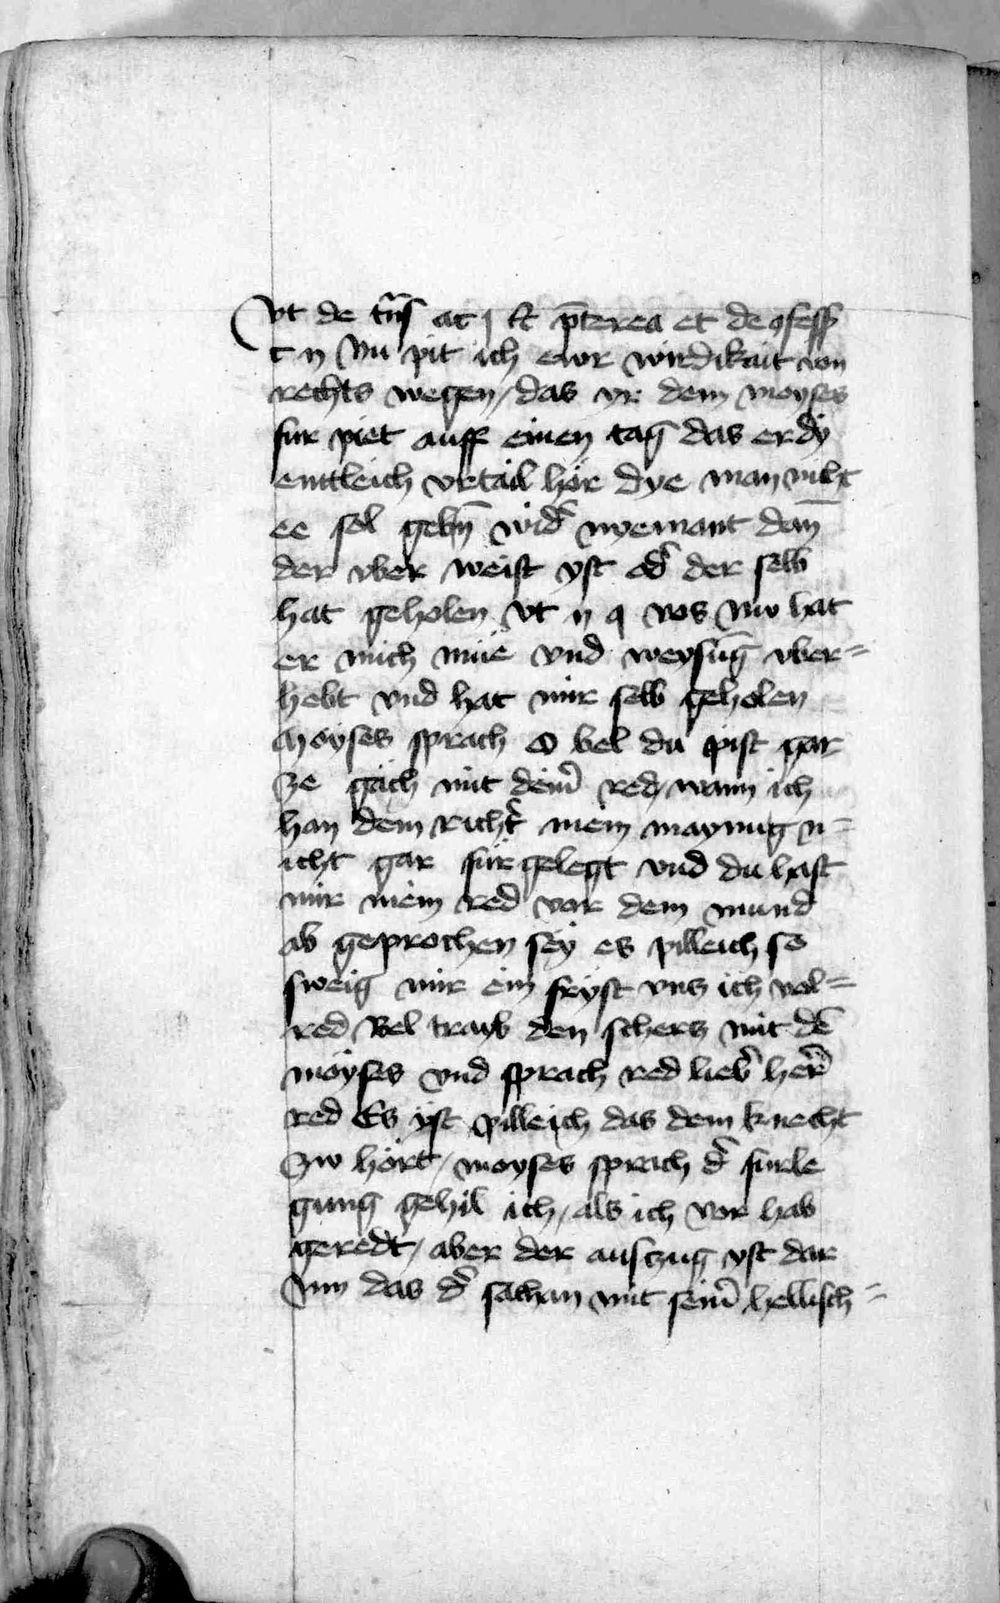 vt de trn̄s ac j ſt p̄terea et de ꝯfeſſ
c n Nu pit ich ewr wirdikait von
rechts wegen / das yr dem moyſes
fur piet auff einen tag das er dÿ
enttleich vrtail hör dye man nicht
ee ſol gebn̄ wid̄ nyemant dan̄
der vber weiſt yſt od̄ der ſelb
hat geholen vt n q vos Nw hat
er mich müe vnd weyſūg vber=
hebt vnd hat mir ſelb geholen
Moyſes ſprach O bel du piſt gar
ze gäch mit deim̄ red / wann ich
han dem richt̄ mein maynug n=
icht gar für gelegt vnd du haſt
mir mein red vor dem mund
ab geprochen ſey es pilleich ſo
ſweig mir ein fryſt vns ich vol=
red Bel trayb den ſchers mit dē
moyſes vnd ſprach red lieb̄ her̄
red Es yſt pilleich das dem knecht
zw hört / moyſes ſprach d̄ furle
gung gehil ich / als ich vor hab
geredt / aber der auſzug yſt dar
vm das d̄ ſathan mit ſeim̄ helliſch=